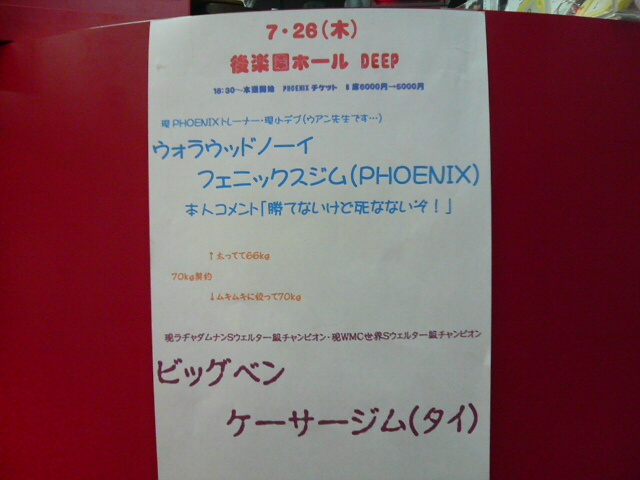 7・26(木)
後楽園ホール DEEP
16:30〜本選開始 PHOENIXチケット S席8000円→6000円
現PHOENIXトレーナー・現小デブ(ウアン先生です…)
ウォラウッドノーイ
フェニックスジム(PHOENIX)
本人コメント「勝てないけど死なないぞ！」
↑太ってて66kg
70kg契約
↓ムキムキに絞って70kg
現ラヂャダムナンSウェルター級チャンピオン・現WMC世界Sウェルター級チャンピオン
ビッグベン
ケーサージム(タイ)